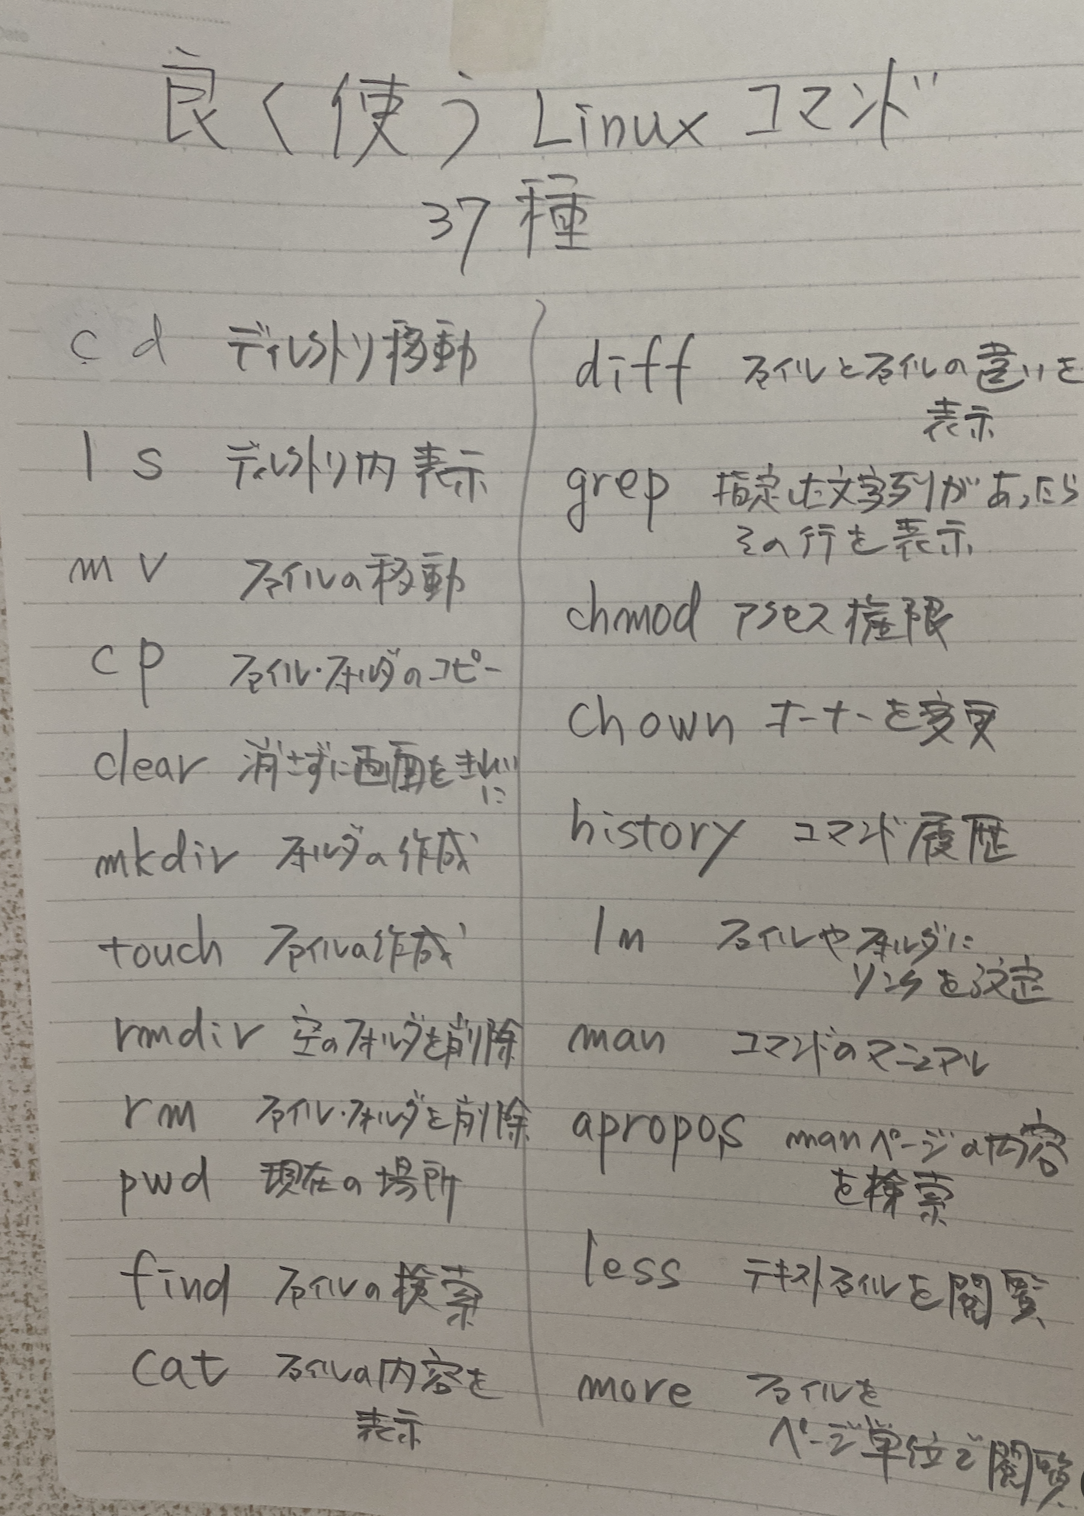 良く使うLinuxコマンド
37種
cd ディレクトリ移動
ls ディレクトリ内表示
mv ファイルの移動
cp ファイル・フォルダのコピー
clear 消さずに画面をきれい
に
mkdir フォルダの作成
touch ファイルの作成
rmdir 空のフォルダを削除
rm ファイル・フォルダを削除
pwd 現在の場所
find ファイルの検索
cat ファイルの内容を
表示
diff ファイルとファイルの違いを
表示
grep 指定した文字列があったら
その行を表示
chmod アクセス権限
chown オーナーを変更
history コマンド履歴
ln ファイルやフォルダに
リンクを設定
man コマンドのマニュアル
apropos manページの内容
を検索
less テキストファイルを閲覧
more ファイルを
ページ単位で閲覧